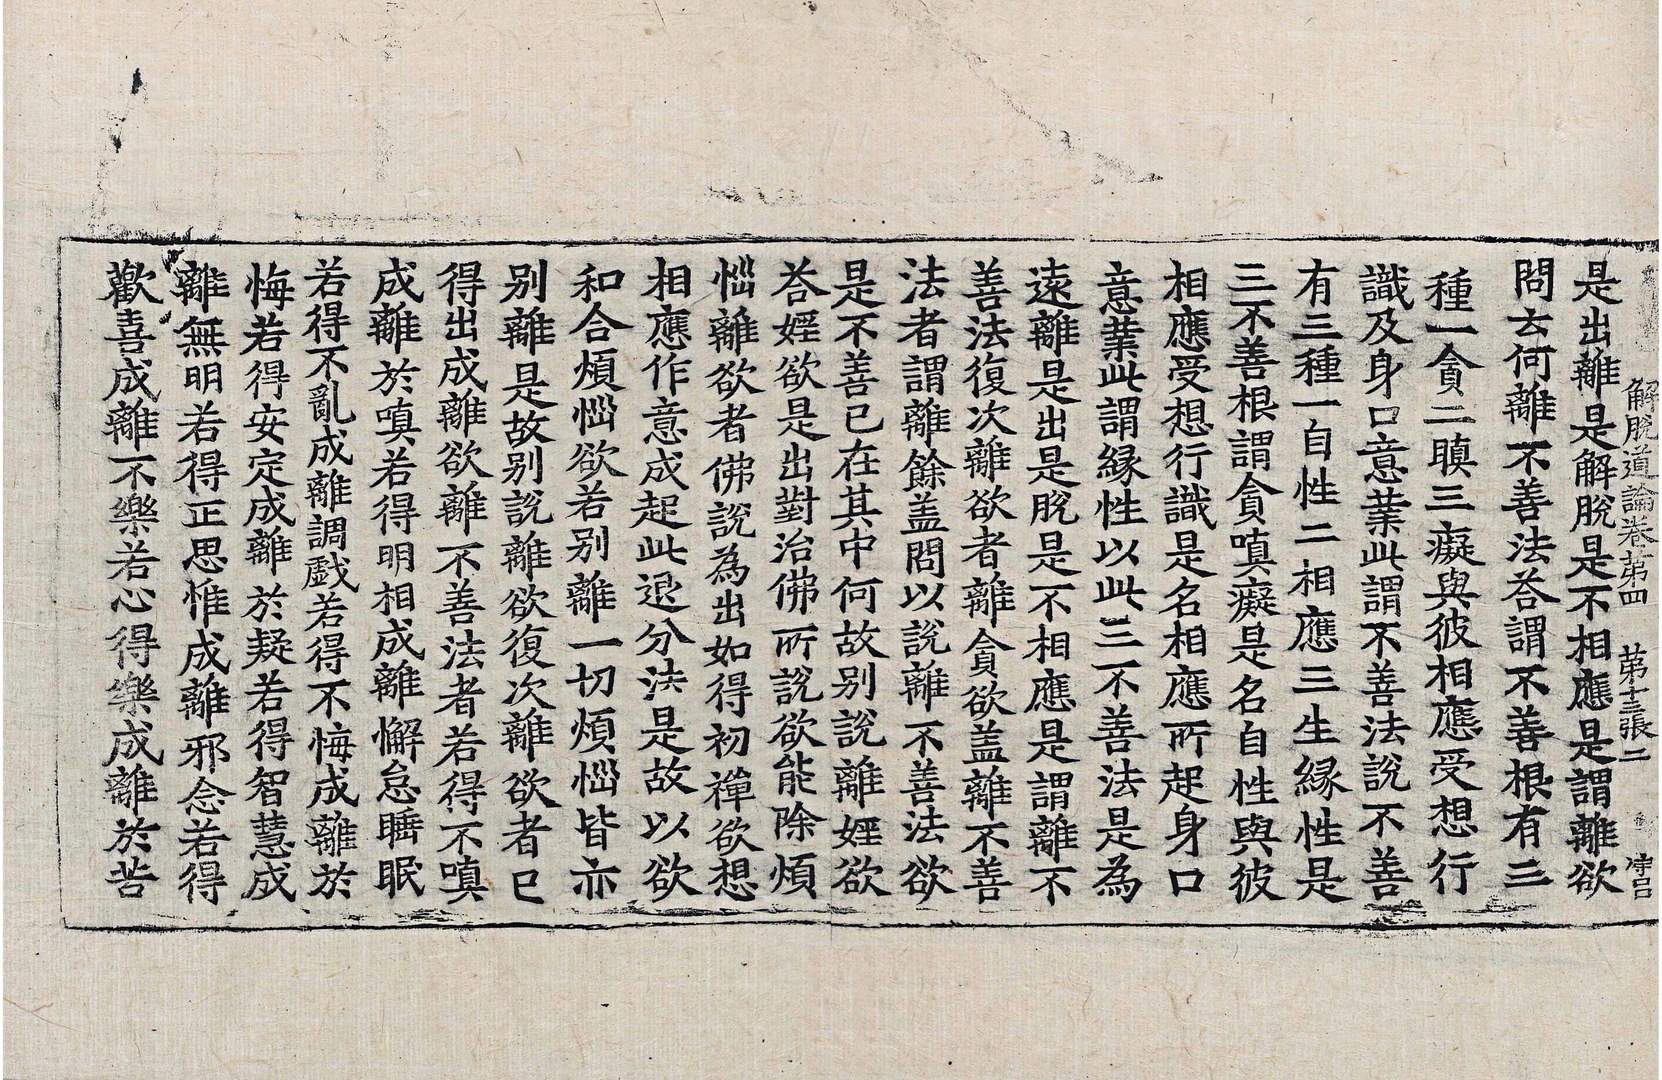 解脫道論卷第四 第十三張 二
是出離是解脫是不相應是謂離欲
問玄何離不善法荅謂不善根有三
種一貪二瞋三癡與彼相應受想行
識及身口意業此謂不善法說不善
有三種一自性二相應三生緣性是
三不善根謂貪嗔癡是名自性與彼
相應受想行識是名相應所起身口
意業此謂緣性以此三不善法是為
遠離是出是脫是不相應是謂離不
善法復次離欲者離貪欲盖離不善
法者謂離餘盖問以說離不善法欲
是不善已在其中何故別說離婬欲
荅婬欲是出對治佛所說欲能除煩
惱離欲者佛說為出如得初禪欲想
相應作意成起此退分法是故以欲
和合煩惱欲若別離一切煩惱皆亦
別離是故別說離欲復次離欲者已
得出成離欲離不善法者若得不嗔
成離於嗔若得明相成離懈怠睡眠
若得不亂成離調戱若得不悔成離於
悔若得安定成離於疑若得智慧成
離無明若得正思惟成離邪念若得
歡喜成離不樂若心得樂成離於苦